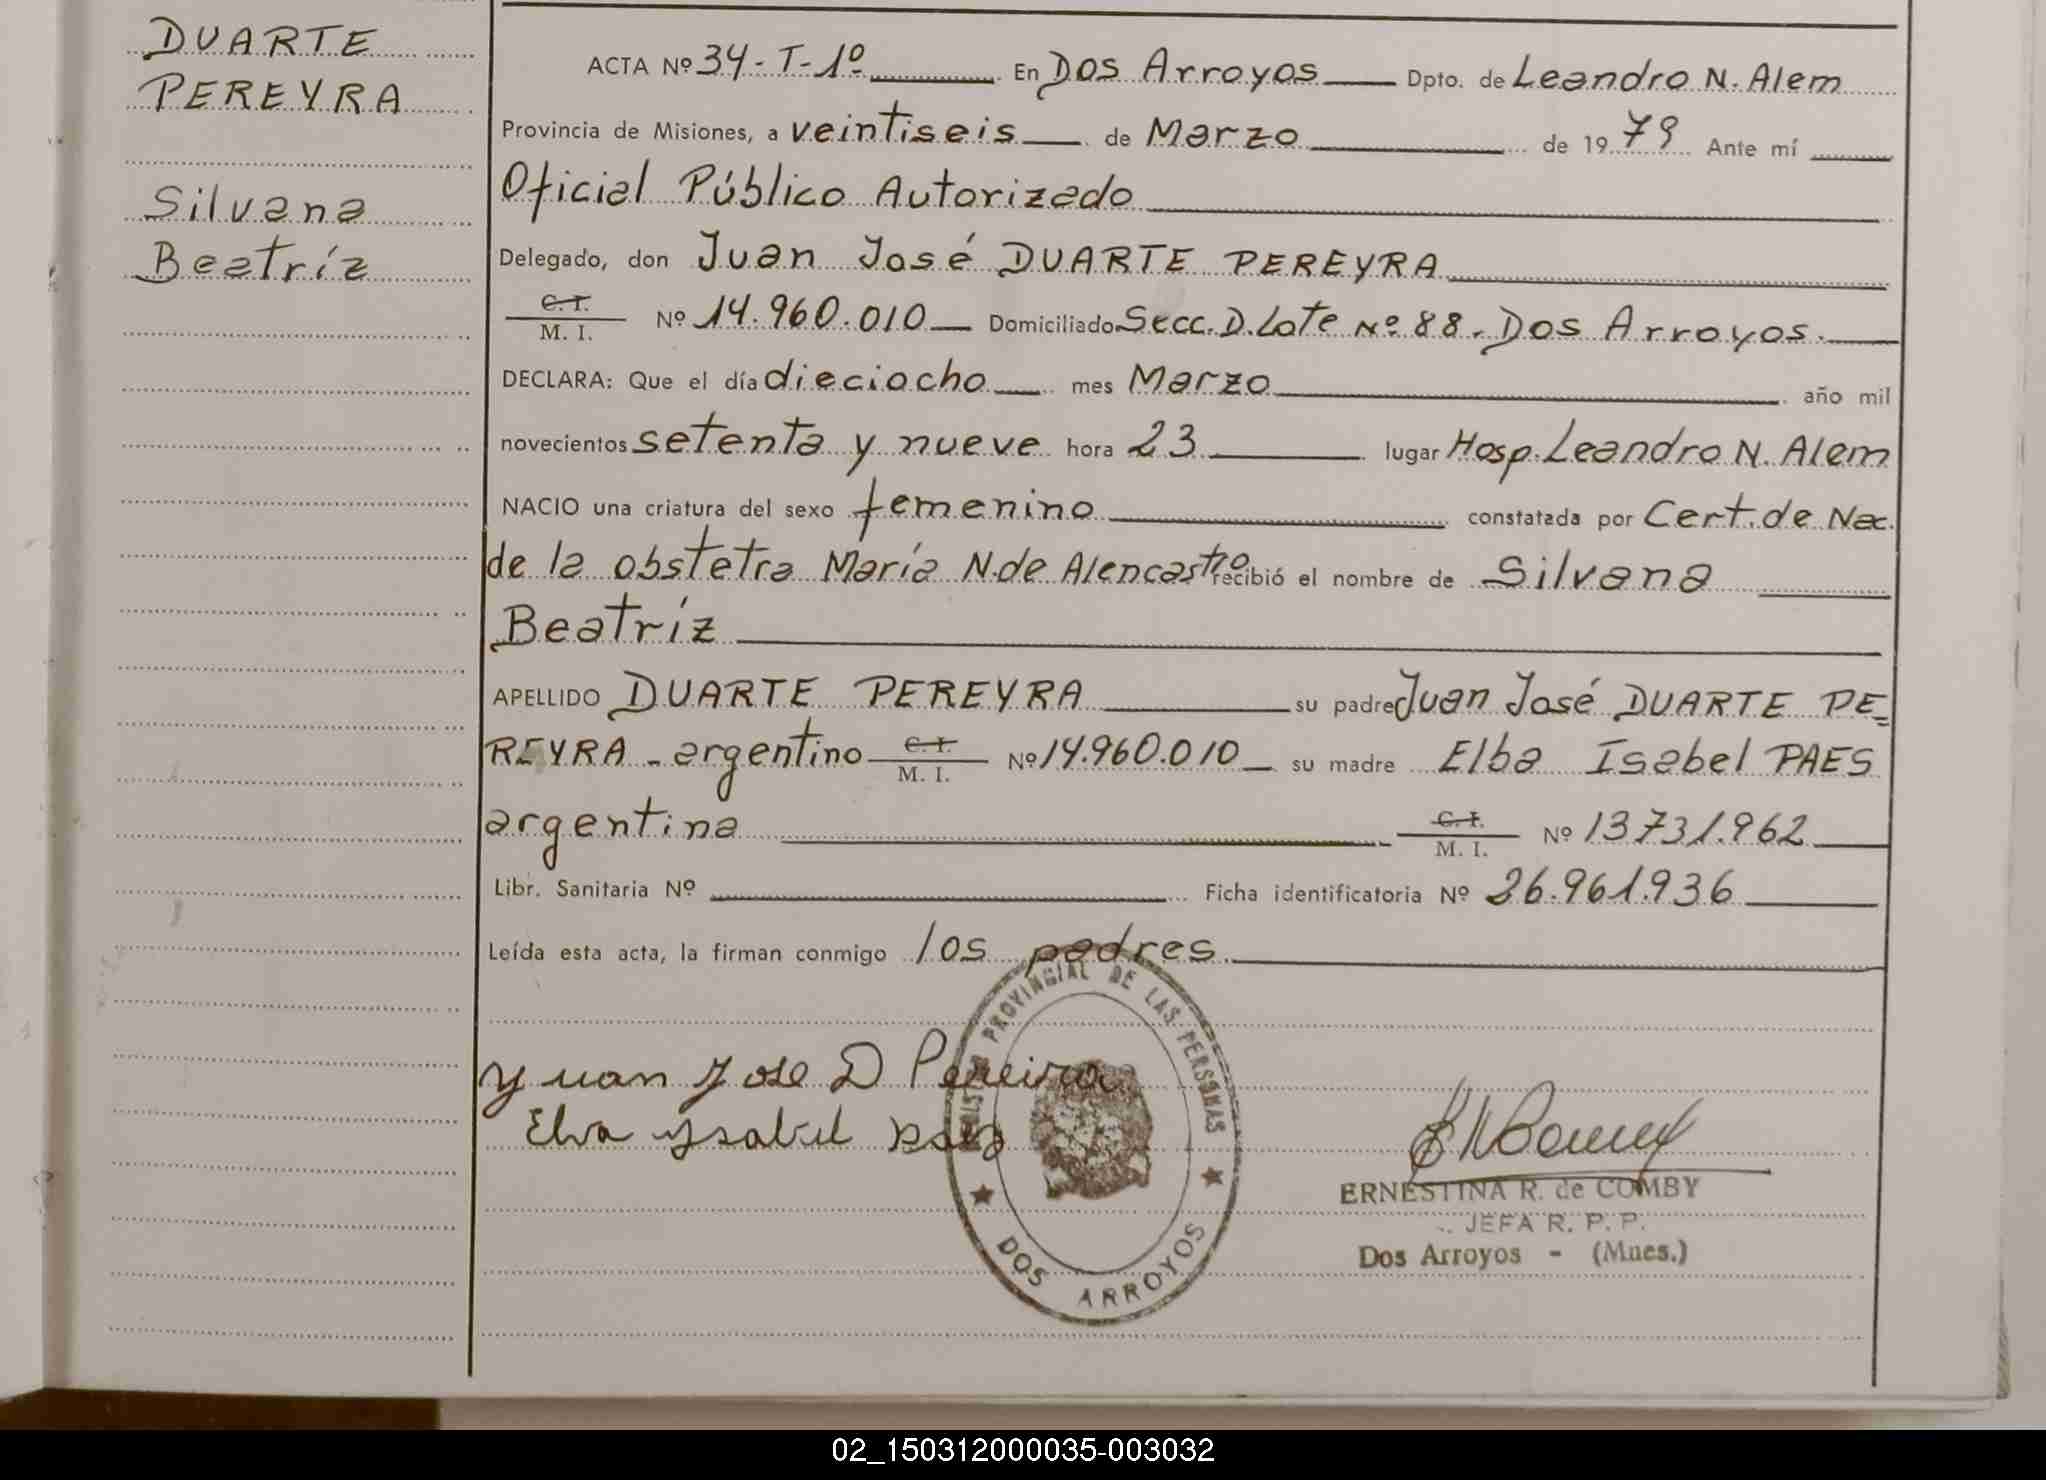 DUARTE
PEREYRA
Silvana
Beatríz
ACTA Nº 34-T-1º En Dos Arroyos Dpto. de Leandro N. Alem
Provincia de Misiones, a veintiseis de Marzo de 1979 Ante mí
Oficial Público Autorizado
Delegado, don Juan José DUARTE PEREYRA
C. I.
M. I. Nº 14.960.010 Domiciliado Secc. D. Lote Nº 88. Dos Arroyos.
DECLARA: Que el día dieciocho mes Marzo año mil
novecientos setenta y nueve hora 23 lugar Hosp. Leandro N. Alem
NACIO una criatura del sexo femenino constatada por Cert. de Nac.
de la obstetra María N. de Alencastro recibió el nombre de Silvana
Beatríz
APELLIDO DUARTE PEREYRA su padre Juan José DUARTE PE=
REYRA - argentino C. I. M. I. Nº 14.960.010 su madre Elba Isabel PAES
argentina C. I. M. I. Nº 13731.962
Libr. Sanitaria Nº Ficha identificatoria Nº 26.961.936
Leída esta acta, la firman conmigo los padres.
Yuan Jose D Pereira
Elva Ysabel
PROVINCIAL DE LAS PERSONAS
DOS ARROYOS
ERNESTINA R. de COMBY
JEFA R. P. P.
Dos Arroyos - (Mnes.)
02_150312000035-003032